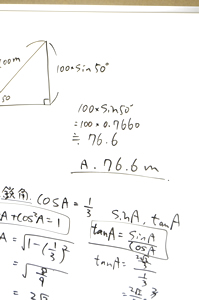 100m
50
100×sin50°
100×sin50°
=100×0.7660
≒76.6
A. 76.6m
鋭角. cosA=1/3
sinA, tanA
A+cos²A=1
tanA=sinA/cosA
A=√1-(1/3)²
=√8/9
tanA=